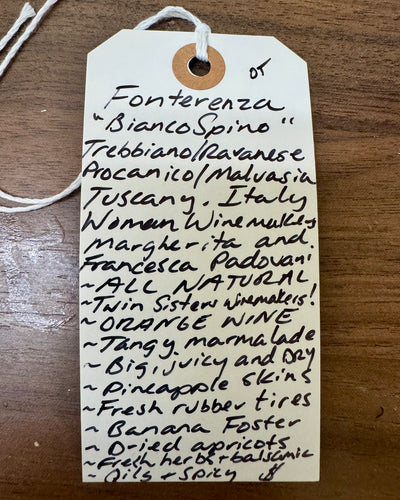 DT
Fonterenza
"BiancoSpino"
Trebbiano/Ravanese
Procanico/Malvasia
Tuscany. Italy
Woman Winemakers
margherita and.
Francesca Padovani
~ALL NATURAL
~Twin Sisters winemakers!
~ORANGE WINE
~Tangy marmalade
~Big, juicy and DRY
~pineapple skins
~Fresh rubber tires
~Banana Foster
~Dried apricots
~Fresh herbs + balsamic
~Oils + Spicy $